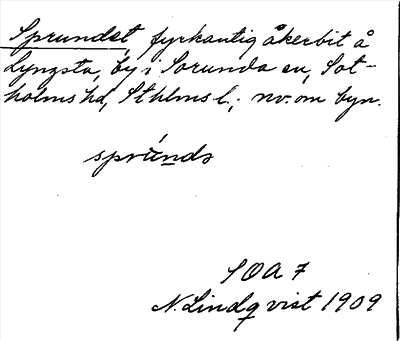 Sprundet, fyrkantig åkerbit å
Lyngsta, by i Sorunda sn, Sot-
holms hd, Sthlms l.; nv. om byn.
sprúnds
SOA 7
N. Lindqvist 1909